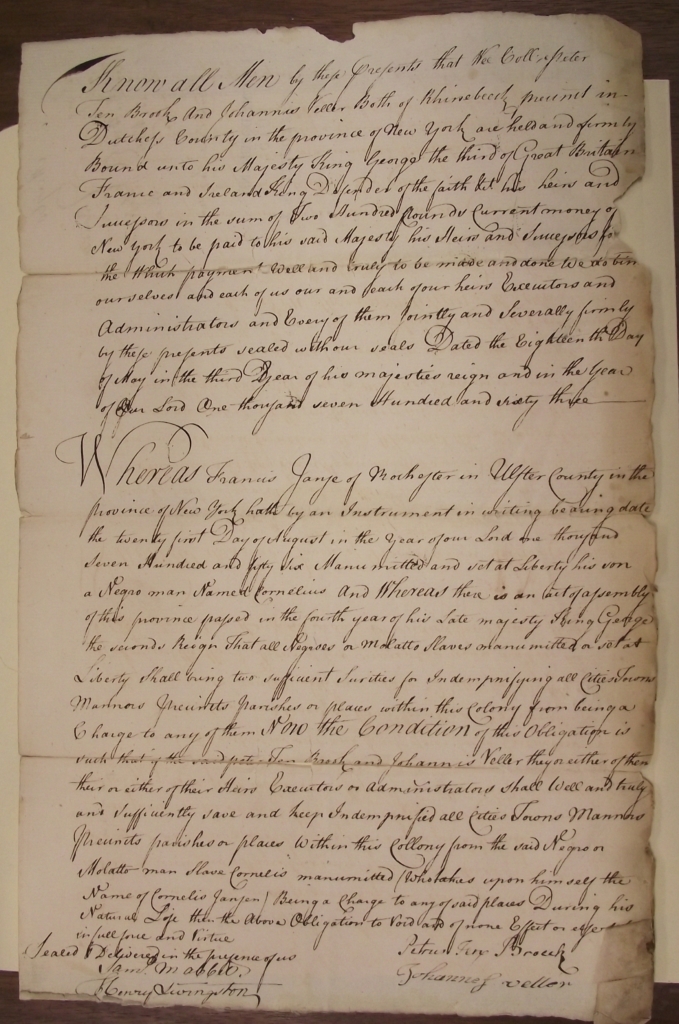 Know all Men by these Presents that Wee Coll. Peter
Ten Brook And Johannis Veller Both of Rhinebeck precinct in
Dutchess County in the province of New York are held and firmly
Bound unto his Majesty King George the third of Great Britain
France and Ireland King Defender of the faith &c his heirs and
Successors in the sum of Two Hundred Pounds Current money of
New York to be paid to his said Majesty his Heirs and Successors for
the Which payment Well and truly to be made and done We do bin
ourselves and each of us our and each of our heirs Executors and
Administrators and Every of them Jointly and Severally firmly
by these presents sealed with our seals Dated the Eighteenth Day
of May in the third Year of his majesties reign and in the Year
of Our Lord One thousand seven Hundred and sixty three
Whereas Francis Janse of Rochester in Ulster County in the
province of New York hath by an Instrument in writing bearing date
the twenty first Day of August in the Year of our Lord one thousand
Seven Hundred and fifty six Manumitted and set at Liberty his son
a Negro man Named Cornelius And Whereas there is an act of assembly
of this province passed in the fourth year of his Late majesty King George
the seconds Reign That all Negroes or Molatto Slaves manumitted or set at
Liberty Shall bring two sufficient Surities for Indempnifying all Cities Towns
Mannors Precincts Parishes or places within this Colony from being a
Charge to any of them Now the Condition of this Obligation is
such that if the said peter Ten Brook and Johannis Veller they or either of them
their or either of their Heirs Executors or Administrators shall Well and truly
and Sufficiently save and keep Indempnified all Cities Towns Mannors
Precincts parishes or places Within this Collony from the said Negro or
Molatto man Slave Cornelis manumitted (Who takes upon himself the
Name of Cornelis Jansen) Being a Charge to any of said places During his
Natural Life then the Above Obligation to Void and of none Effect or else
in full force and Virtue
Sealed & Delivered in the presence of us
Petrus Ten Broeck
Saml. Mabbit
Johannes vellor
Henry Livingston